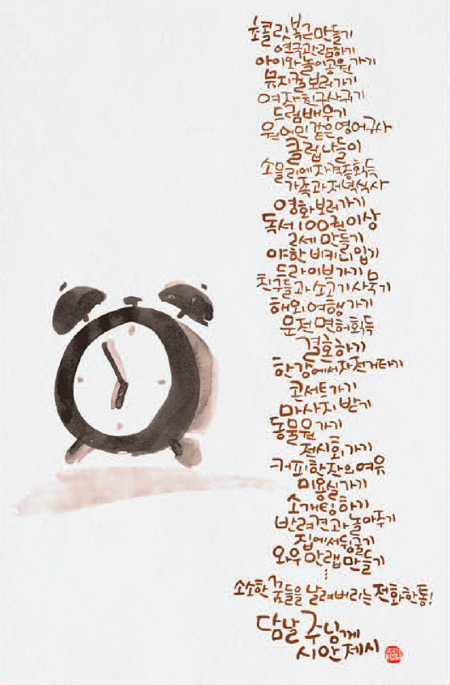 초콜릿복근만들기
연극관람하기
아이와놀이공원가기
뮤지컬보러가기
여자친구사귀기
드럼배우기
원어민같은영어구사
클럽나들이
소믈리에자격증획득
가족과저녁식사
영화보러가기
독서100권이상
2세만들기
야한비키니입기
드라이브가기
친구들과소고기사묵기
해외여행가기
운전면허획득
결혼하기
한강에서자전거타기
콘서트가기
마사지받기
동물원가기
전시회가기
커피한잔의여유
미용실가기
소개팅하기
반려견과놀아주기
집에서뒹굴기
와우만랩만들기
⋮
소소한꿈들을날려버리는전화한통!
담날주님께
시안제시